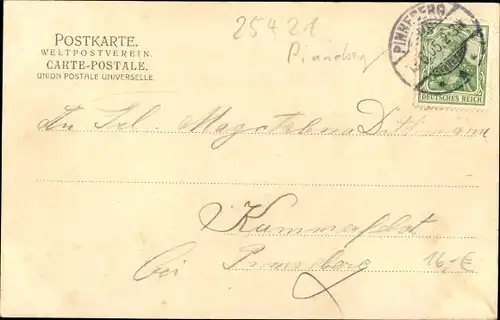 25421
Pinneberg
POSTKARTE.
WELTPOSTVEREIN.
CARTE-POSTALE.
UNION POSTALE UNIVERSELLE.
PINNEBERG
DEUTSCHES REICH
An Frl. Magdalena Dittmann
Kummerfeld
bei Pinneberg
16,-€